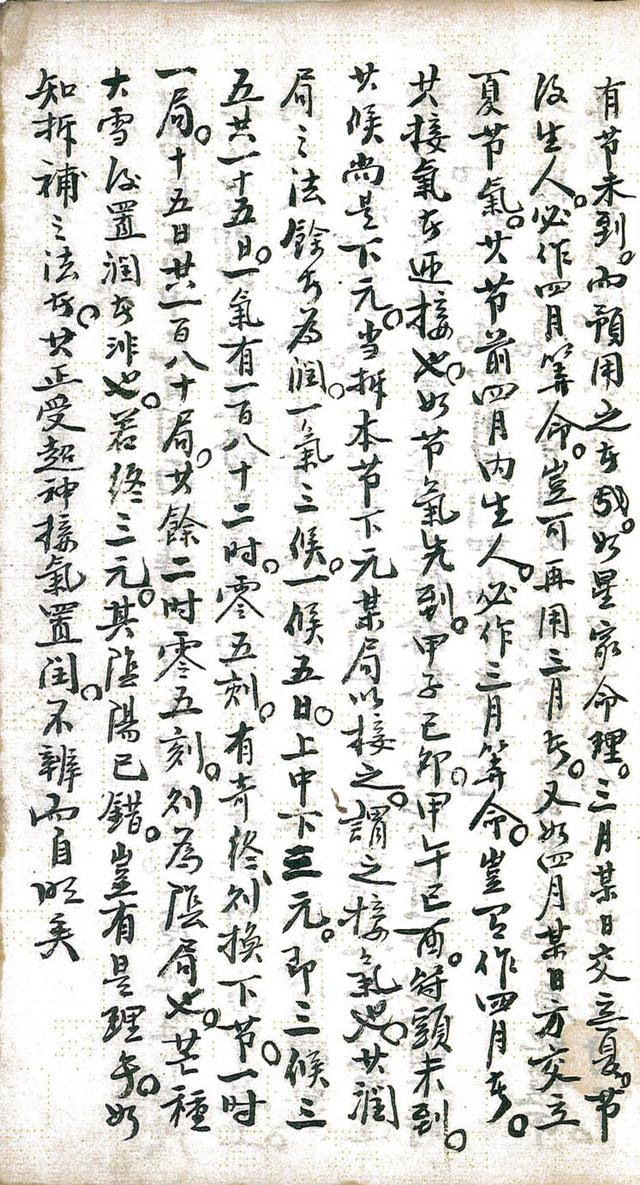 有节未到。而預用之者哉。如星家命理。三月某日交立夏。节
後生人。必作四月筭命。豈可再用三月者。又如四月某日方交立
夏节氣。其节前四月内生人。必作三月筭命。豈可作四月者。
其接氣者迎接也。如节氣先到。甲子己卯。甲午己酉。符頭未到。
其候尚是下元。当拆本节下元某局以接之。謂之接氣也。其潤
局之法餘者為潤。一氣三候。一候五日。上中下三元。即三候三
五共一十五日。一氣有一百八十二时。零五刻。有奇終則換下节。一时
一局。十五日共一百八十局。其餘二时零五刻。則為陰局也。芒種
大雪後置潤者非也。若終三元。其陰陽已錯。豈有是理乎。如
知拆補之法者。其正受超神接氣置闰。不辨而自明矣